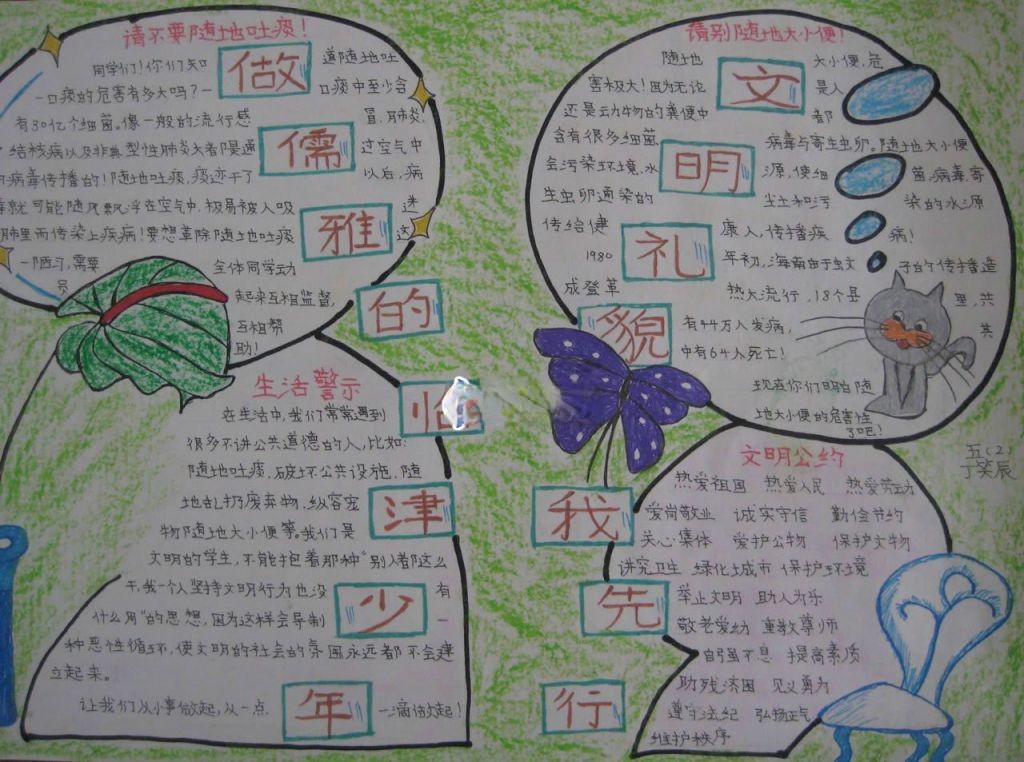 请不要随地吐痰！
同学们！你们知道随地吐
一口痰的危害有多大吗？一口痰中至少含
有30亿个细菌。像一般的流行感冒、肺炎、
结核病以及非典型性肺炎大都是通过空气中
病毒传播的！随地吐痰，痰迹干了以后，病
毒就可能随风飘浮在空气中，极易被人吸进
肺里而传染上疾病！要想革除随地吐痰这
一陋习，需要全体同学动
员起来互相监督，
互相帮
助！
生活警示
在生活中，我们常常遇到
很多不讲公共道德的人，比如：
随地吐痰、破坏公共设施、随
地乱扔废弃物，纵容宠
物随地大小便等。我们是
文明的学生，不能抱着那种“别人都这么
干，我一个人坚持文明行为也没有
什么用”的思想，因为这样会导制一
种恶性循环，使文明的社会的氛围永远都不会建
立起来。
让我们从小事做起，从一点一滴做起！
做
儒
雅
的
临
津
少
年
请别随地大小便！
随地大小便，危
害极大！因为无论是人
还是动物的粪便中都
含有很多细菌病毒与寄生虫卵。随地大小便
会污染环境、水源，使细菌、病毒、寄
生虫卵通染的尘土和污染的水源
传给健康人，传播疾病！
1980年初，海南由于蚊子的传播造
成登革热大流行，18个县里，共
有44万人发病，其
中有64人死亡！
现在你们明白随
地大小便的危害性
了吧！
文
明
礼
貌
我
先
行
文明公约
热爱祖国 热爱人民 热爱劳动
爱岗敬业 诚实守信 勤俭节约
关心集体 爱护公物 保护文物
讲究卫生 绿化城市 保护环境
举止文明 助人为乐
敬老爱幼 重教尊师
自强不息 提高素质
助残济困 见义勇为
遵守法纪 弘扬正气
维护秩序
五（2）
丁笑辰